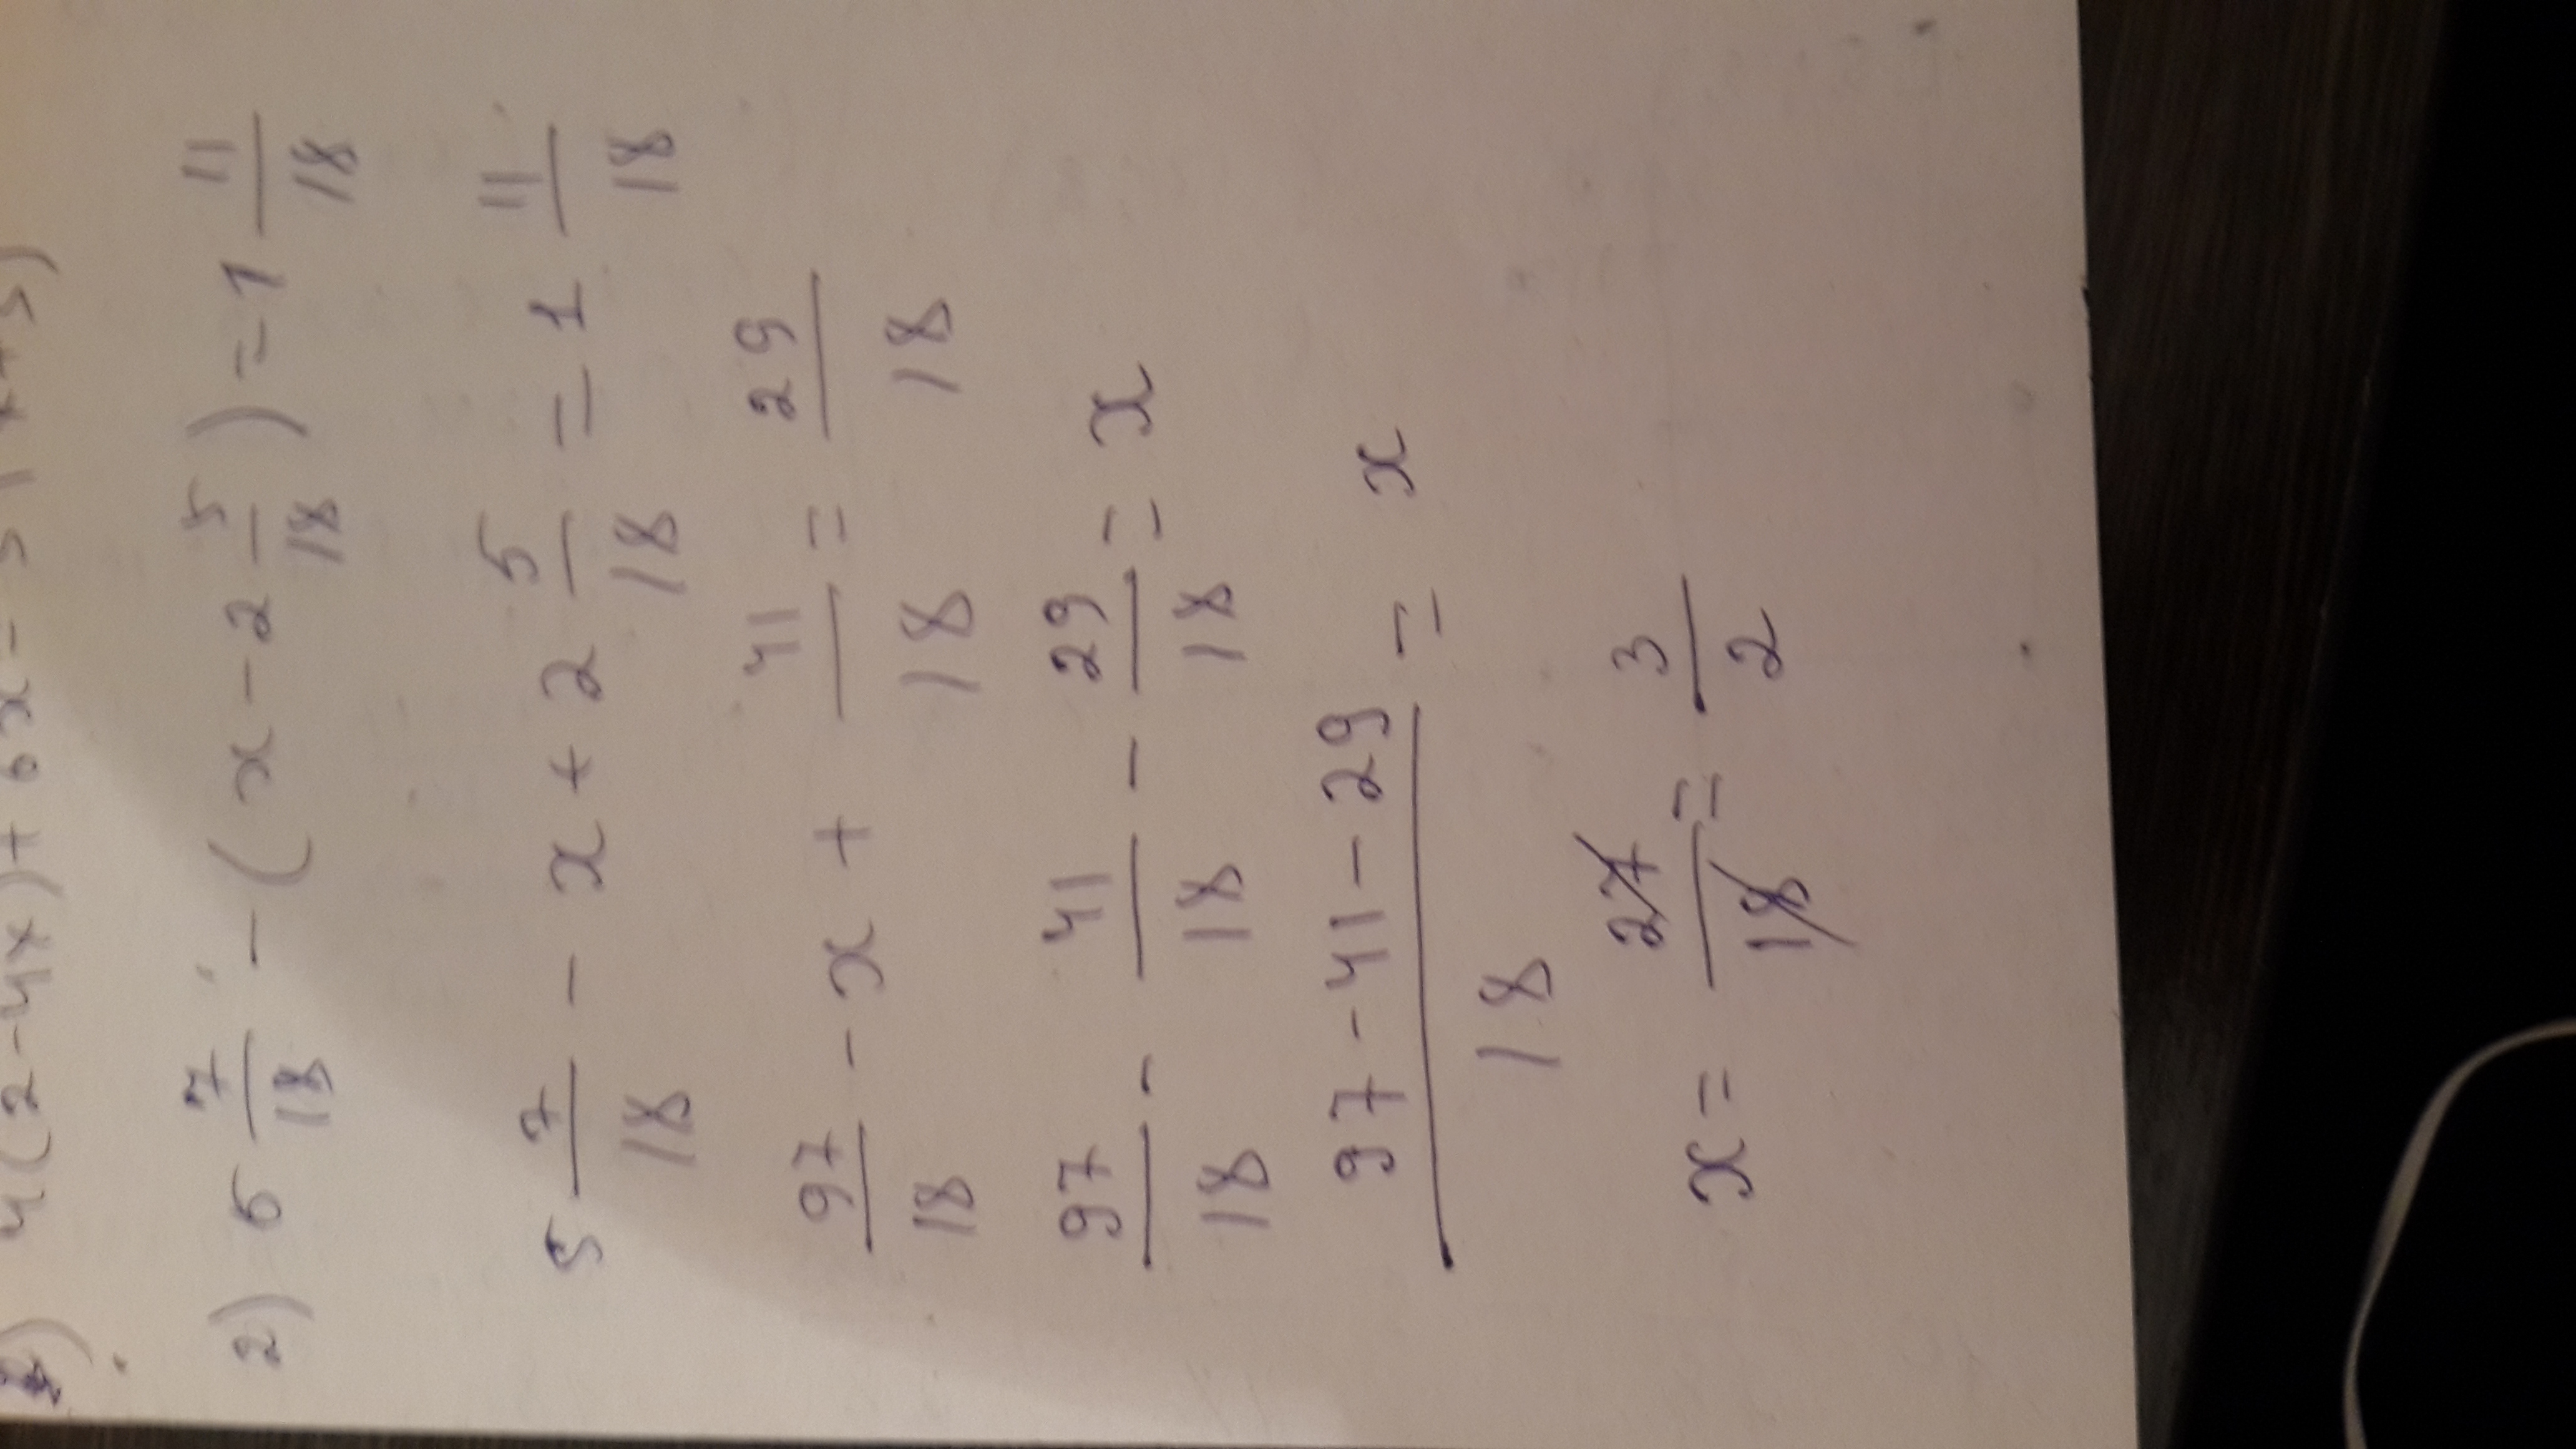 4(2-4x)+6x=
2) 5 7/18 - (x - 2 5/18) = 1 11/18
5 7/18 - x + 2 5/18 = 1 11/18
97/18 - x + 41/18 = 29/18
97/18 - 41/18 - 29/18 = x
97-41-29/18 = x
x = 27/18 = 3/2